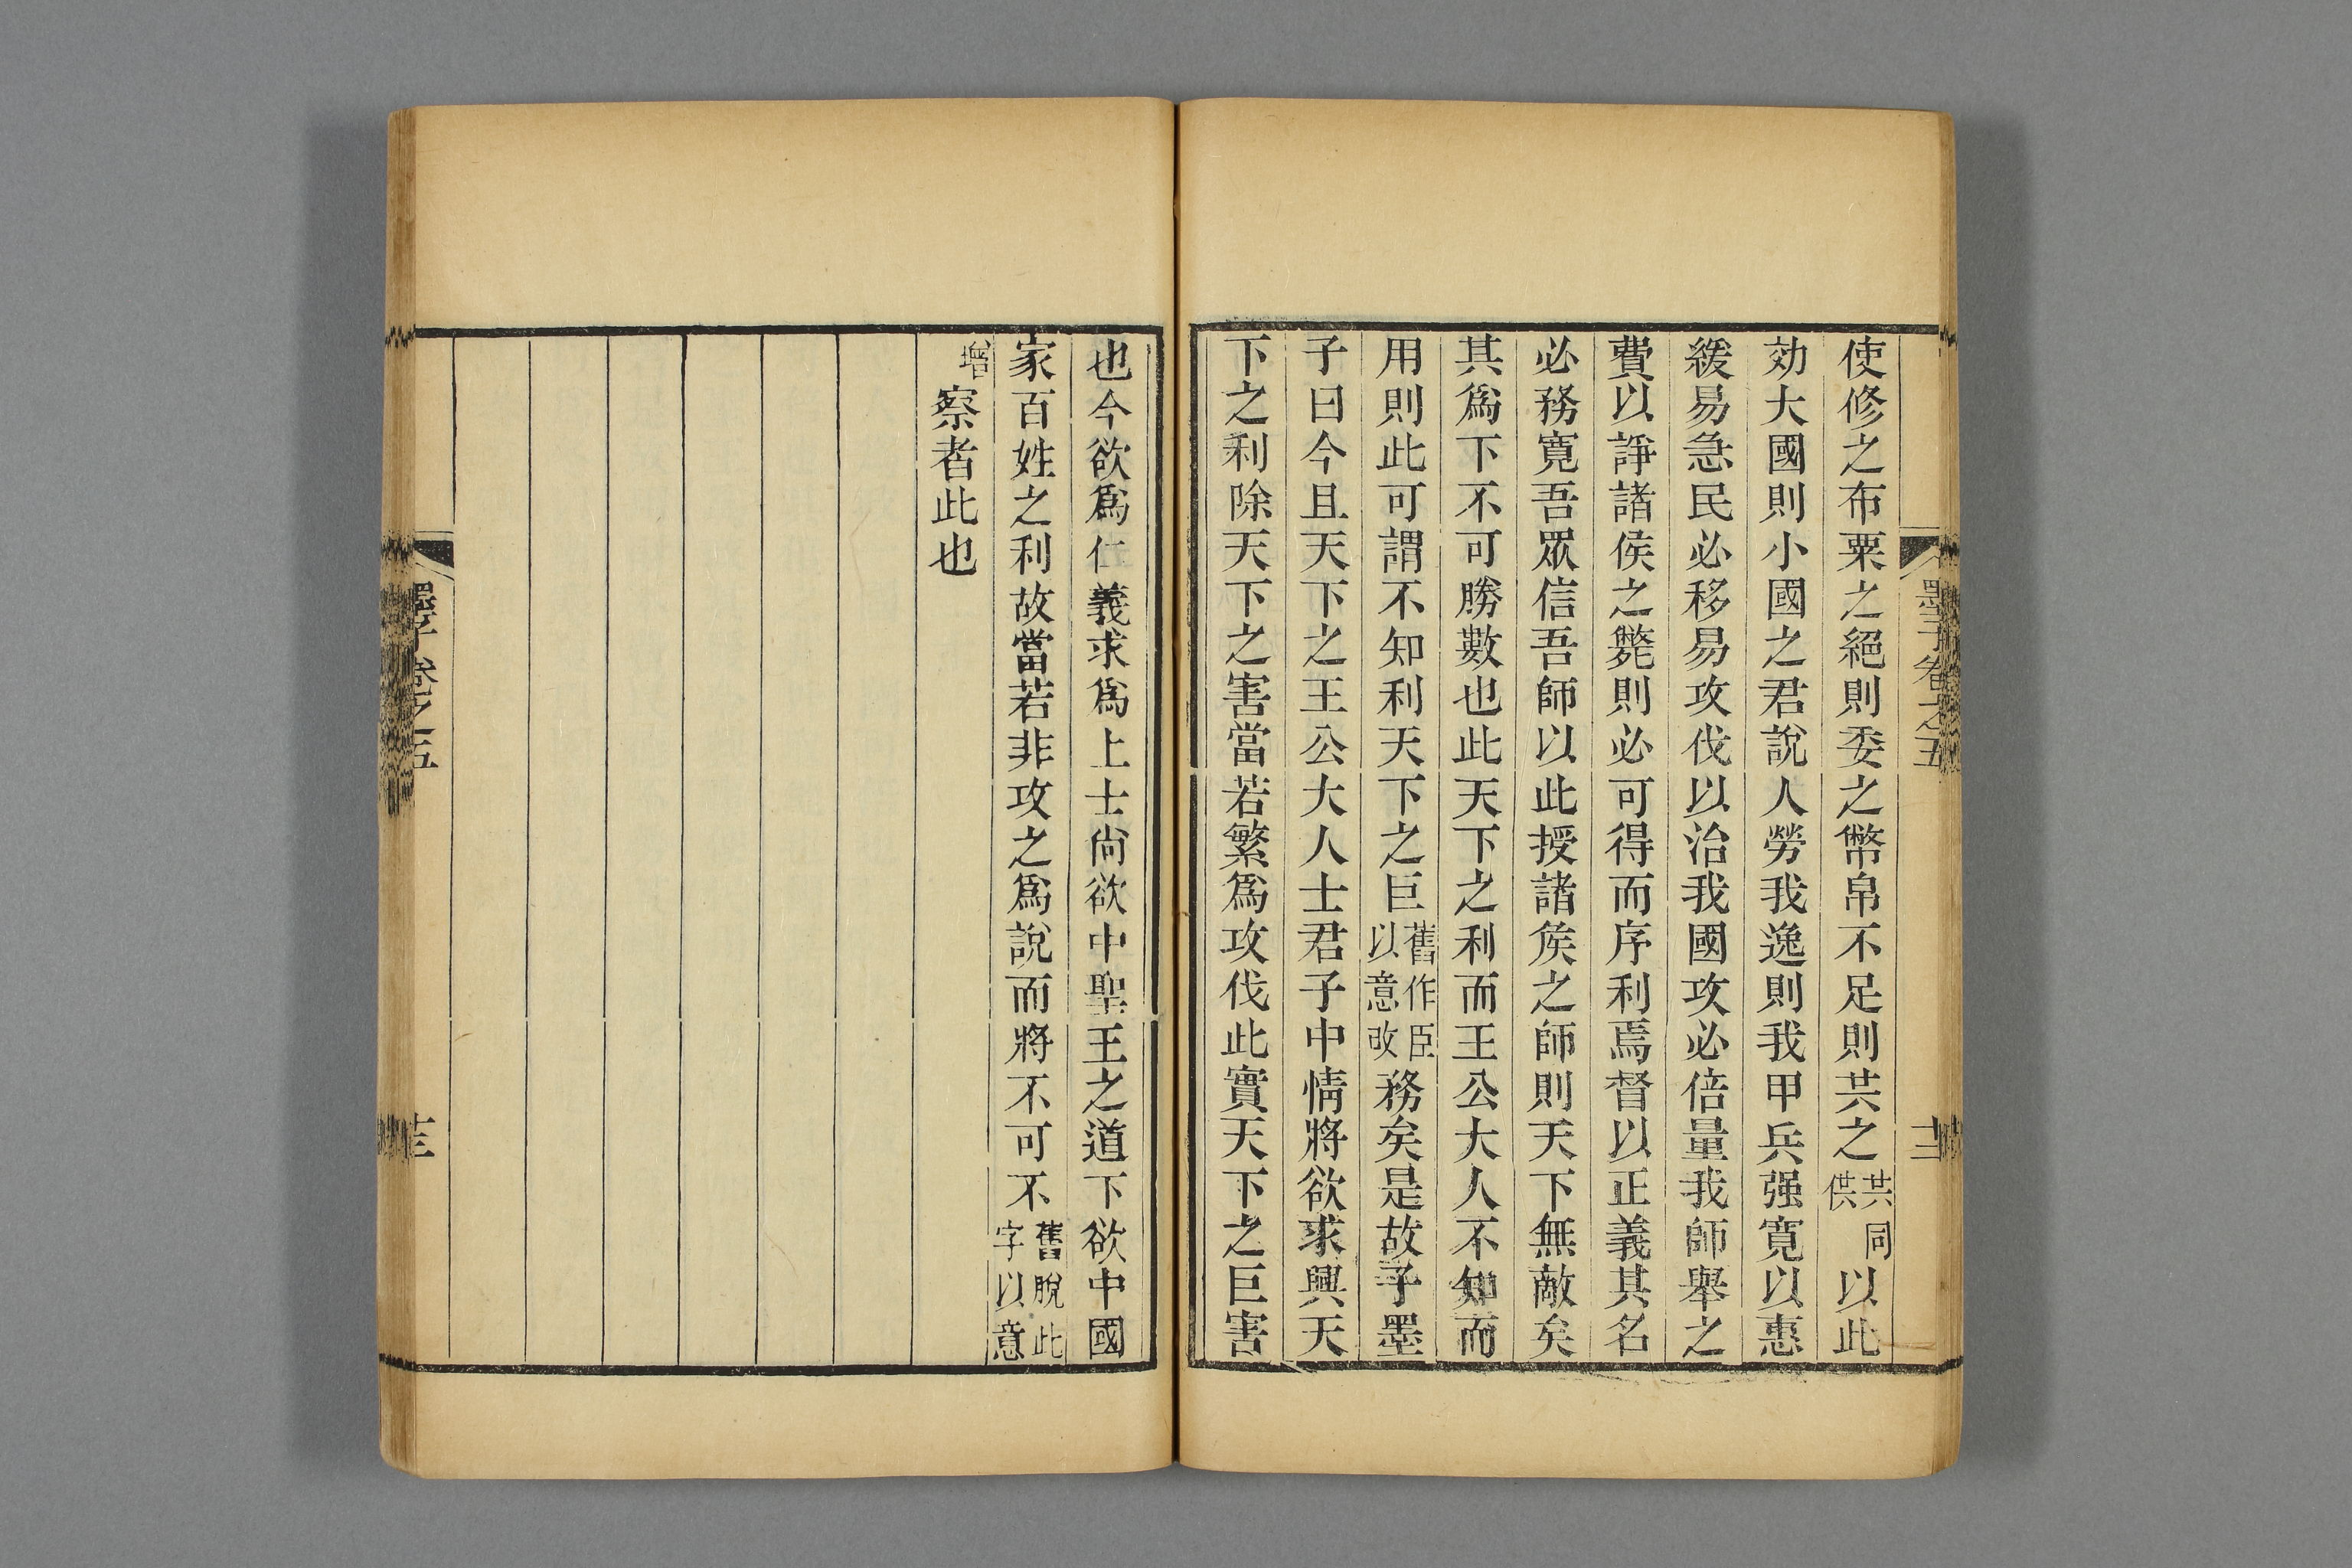 墨子卷之五
十二
使修之布粟之絕則委之幣帛不足則共之共同供以此
効大國則小國之君說人勞我逸則我甲兵强寬以惠
緩易急民必移易攻伐以治我國攻必倍量我師舉之
費以諍諸侯之斃則必可得而序利焉督以正義其名
必務寬吾眾信吾師以此授諸矦之師則天下無敵矣
其爲下不可勝數也此天下之利而王公大人不知而
用則此可謂不知利天下之巨舊作臣以意改務矣是故子墨
子曰今且天下之王公大人士君子中情將欲求興天
下之利除天下之害當若繁爲攻伐此實天下之巨害
也今欲爲仁義求爲上士尙欲中聖王之道下欲中國
家百姓之利故當若非攻之爲說而將不可不舊脫此字以意
增察者此也
墨子卷之五
十三